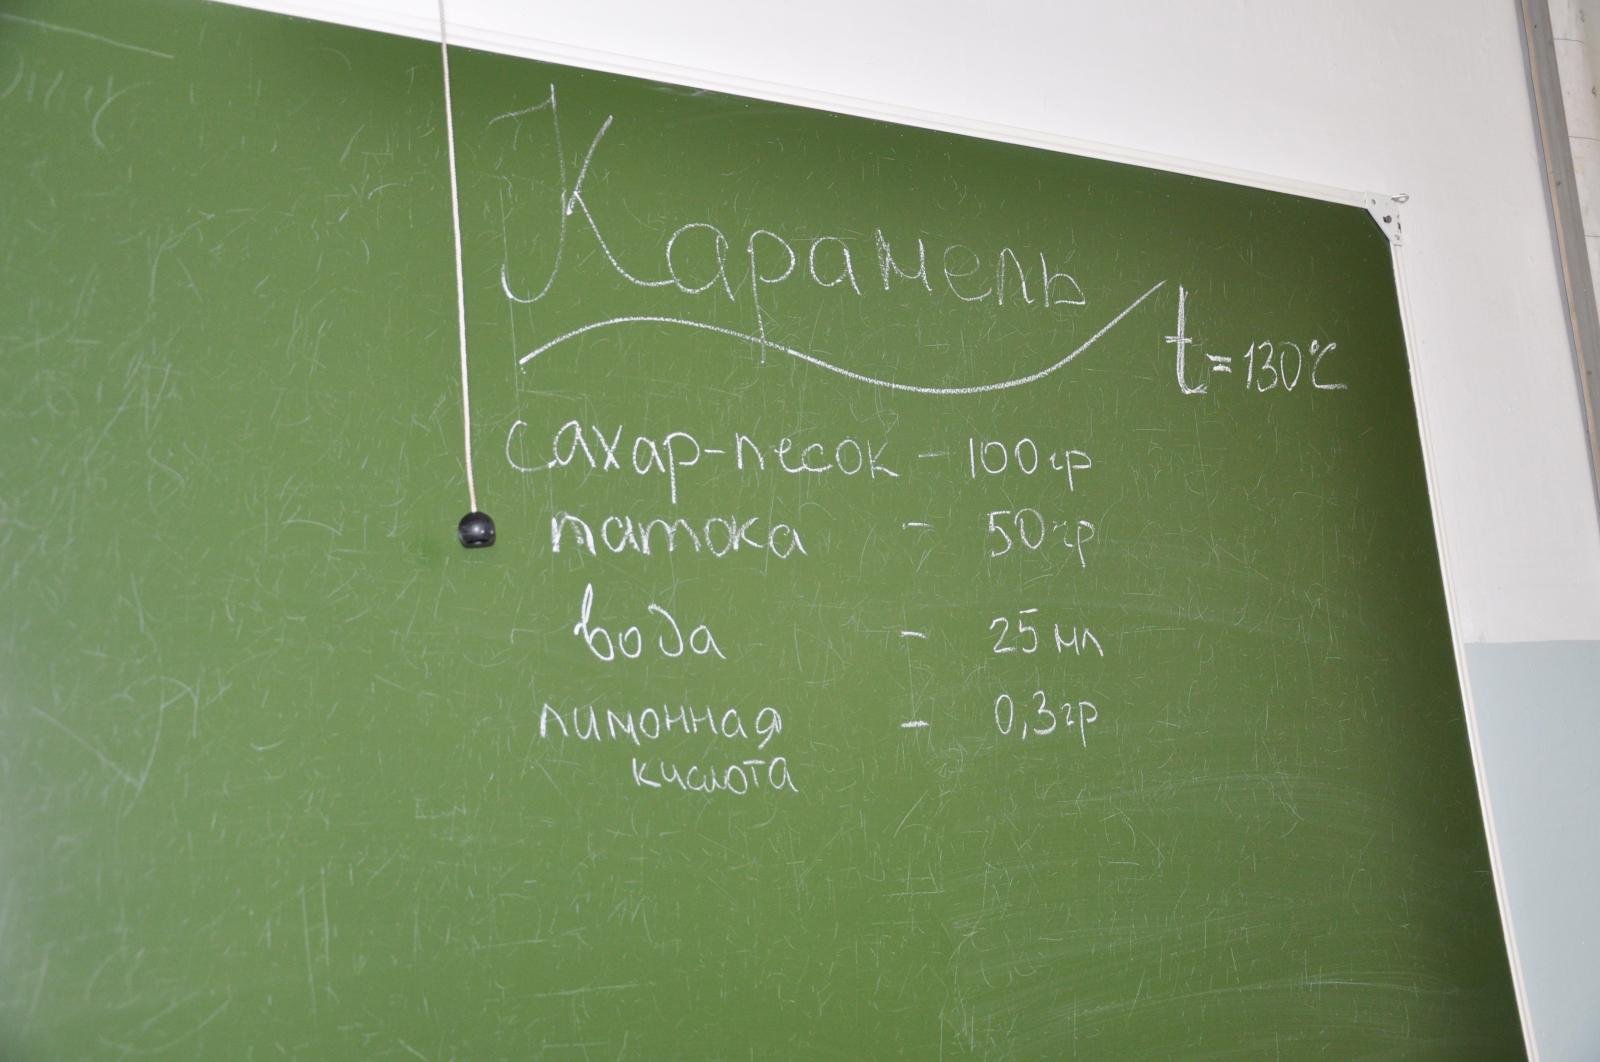 Карамель
t=130°C
сахар-песок - 100гр
патока - 50гр
вода - 25 мл
лимонная - 0,3гр
кислота